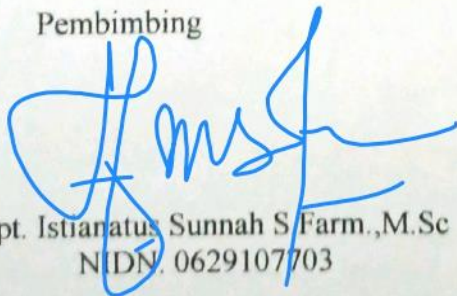 Pembimbing
pt. Istianatus Sunnah S.Farm.,M.Sc
NIDN. 0629107703